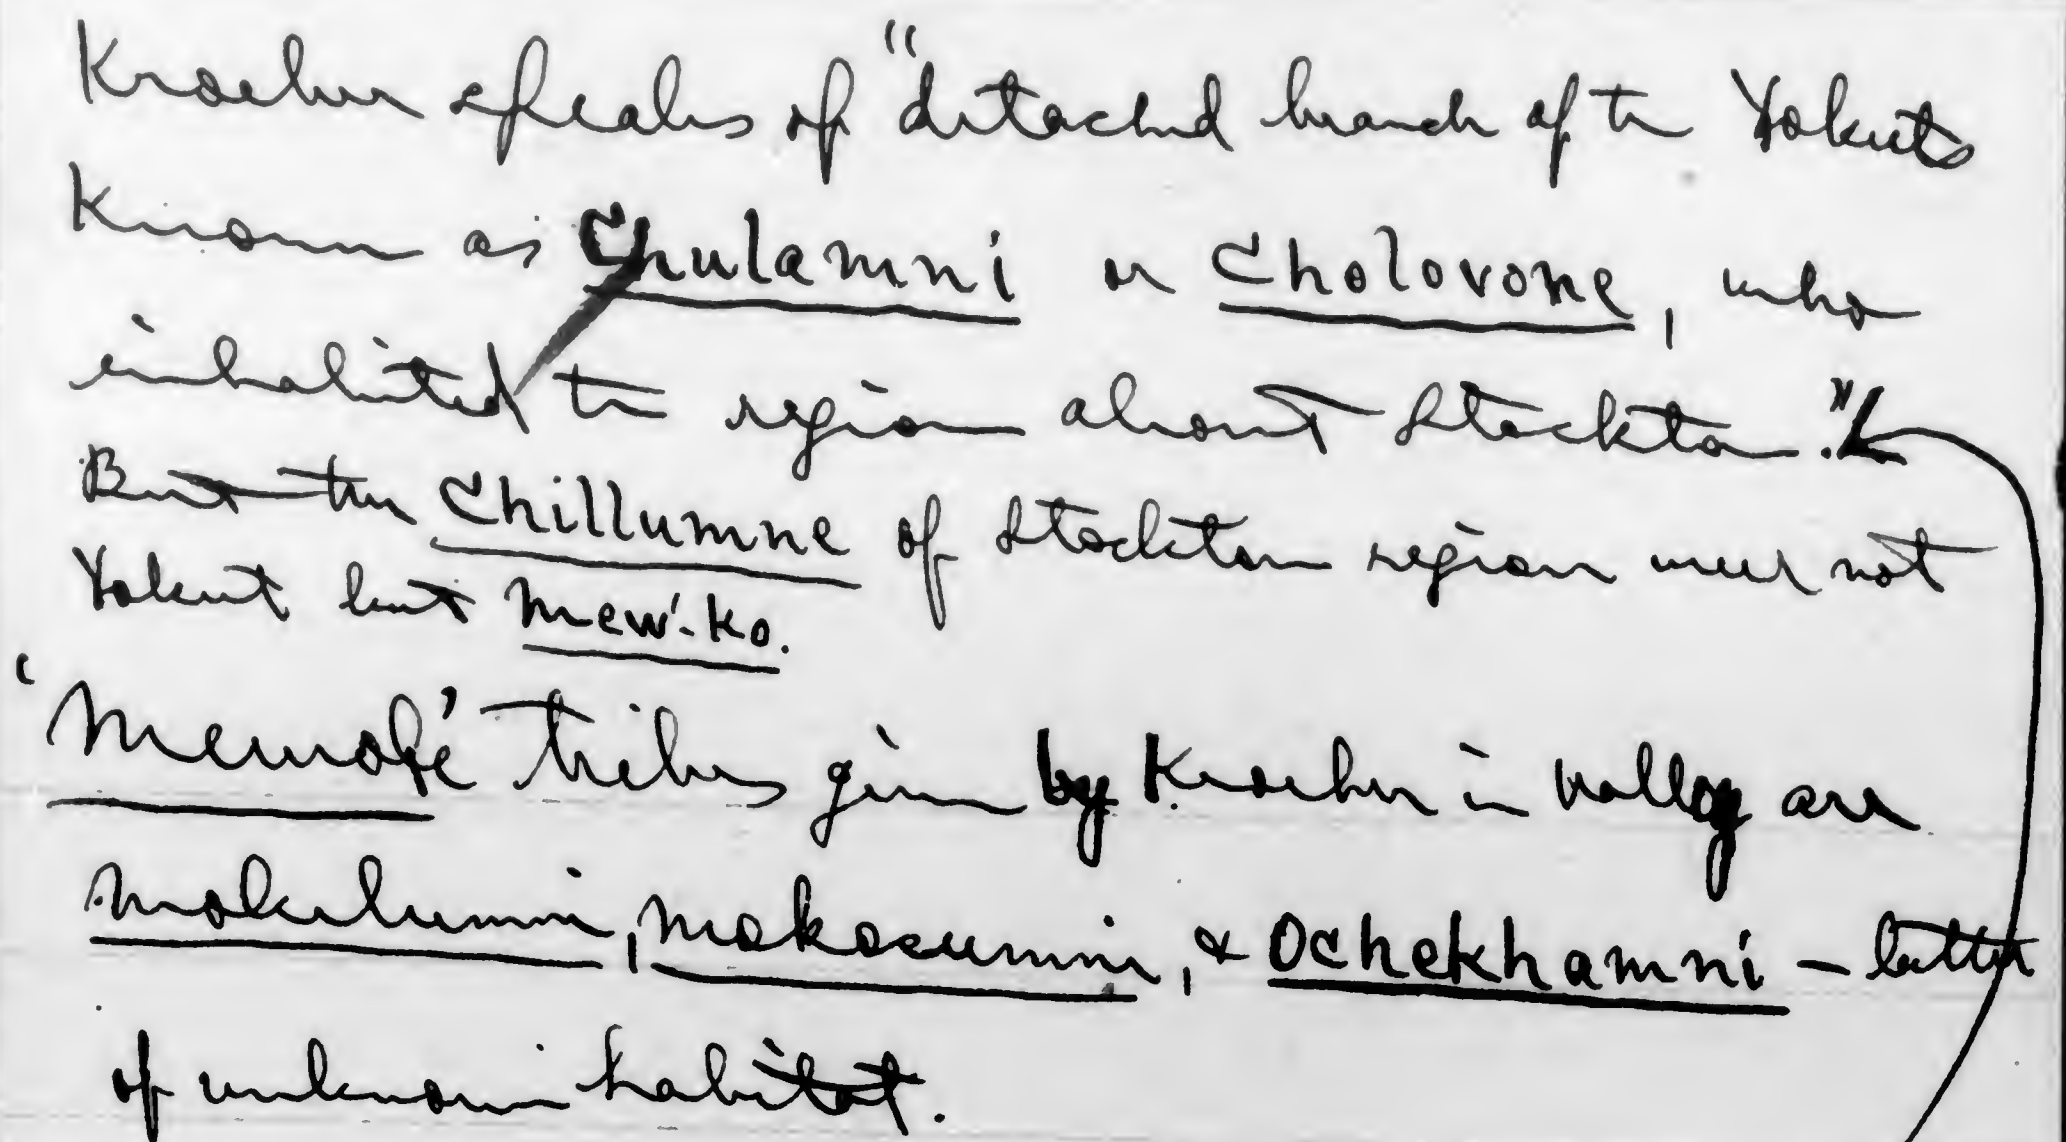 Kroeber speaks of "detached branch of the Yokuts
Known as Chulamni or Cholovone, who
inhabited the region about Stockton."
But the Chillumne of Stockton region were not
Yokut but Mew'-ko.
'Mewok' tribes given by Kroeber in valley are
Mokelumni, Mokosumni, & Ochekhamni – latter
of unknown habitat.